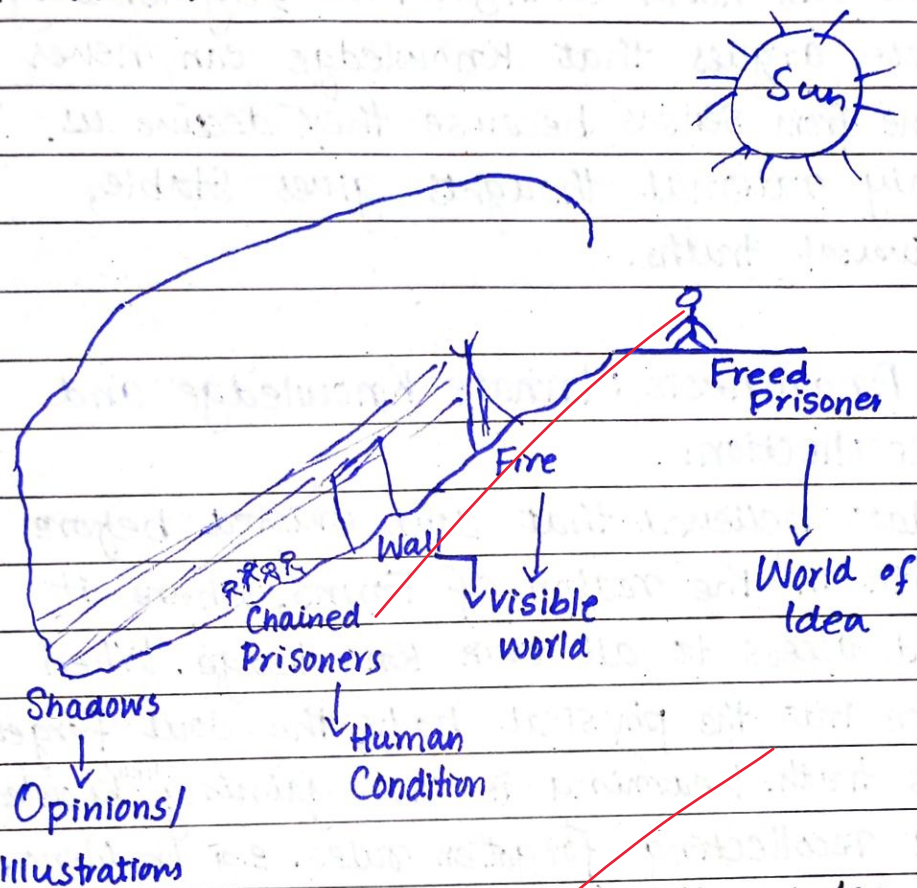 Sun
Freed
Prisoner
Fire
Wall
Visible
world
World of
Idea
Chained
Prisoners
Shadows
Human
Condition
Opinions/
Illustrations